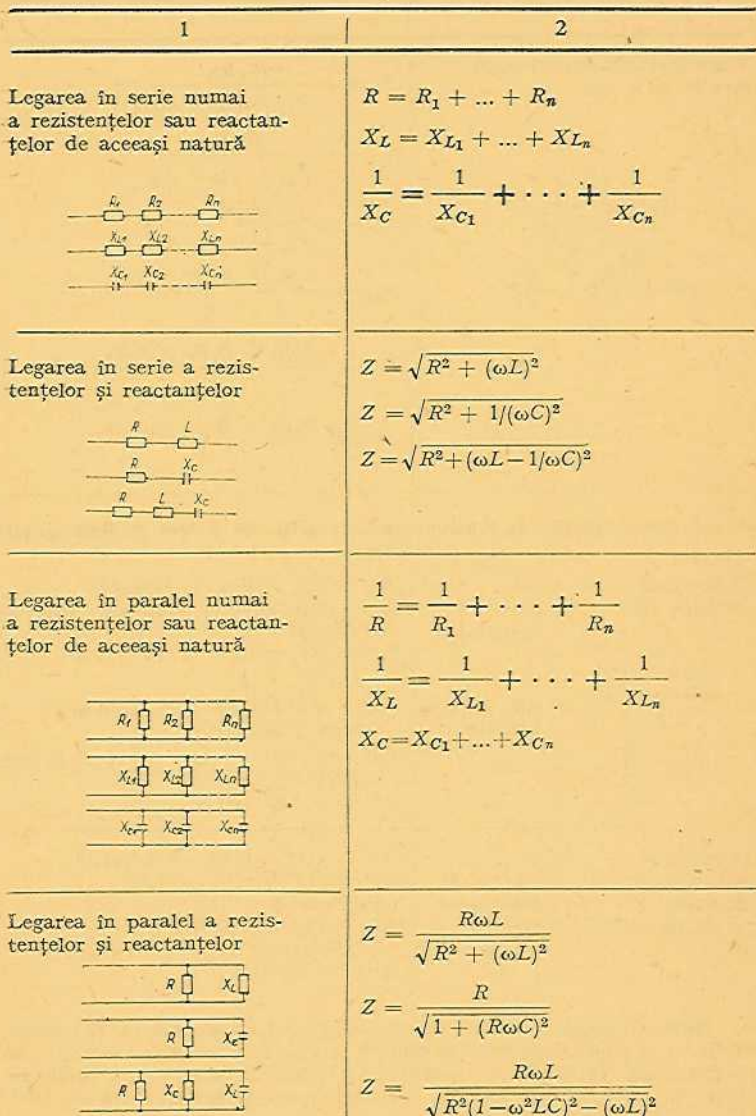 1 2
Legarea în serie numai
a rezistențelor sau reactan-
țelor de aceeași natură
R1 R2 Rn
XL1 XL2 XLn
XC1 XC2 XCn
R = R₁ + ... + Rₙ
X_L = X_L₁ + ... + X_Lₙ
1/X_C = 1/X_C₁ + · · · + 1/X_Cₙ
Legarea în serie a rezis-
tențelor și reactanțelor
R L
R XC
R L XC
Z = √(R² + (ωL)²)
Z = √(R² + 1/(ωC)²)
Z = √(R² + (ωL − 1/ωC)²)
Legarea în paralel numai
a rezistențelor sau reactan-
țelor de aceeași natură
R1 R2 Rn
XL1 XL2 XLn
XC1 XC2 XCn
1/R = 1/R₁ + · · · + 1/Rₙ
1/X_L = 1/X_L₁ + · · · + 1/X_Lₙ
X_C = X_C₁ + ... + X_Cₙ
Legarea în paralel a rezis-
tențelor și reactanțelor
R XL
R XC
R XC XL
Z = RωL / √(R² + (ωL)²)
Z = R / √(1 + (RωC)²)
Z = RωL / √(R²(1−ω²LC)² − (ωL)²)